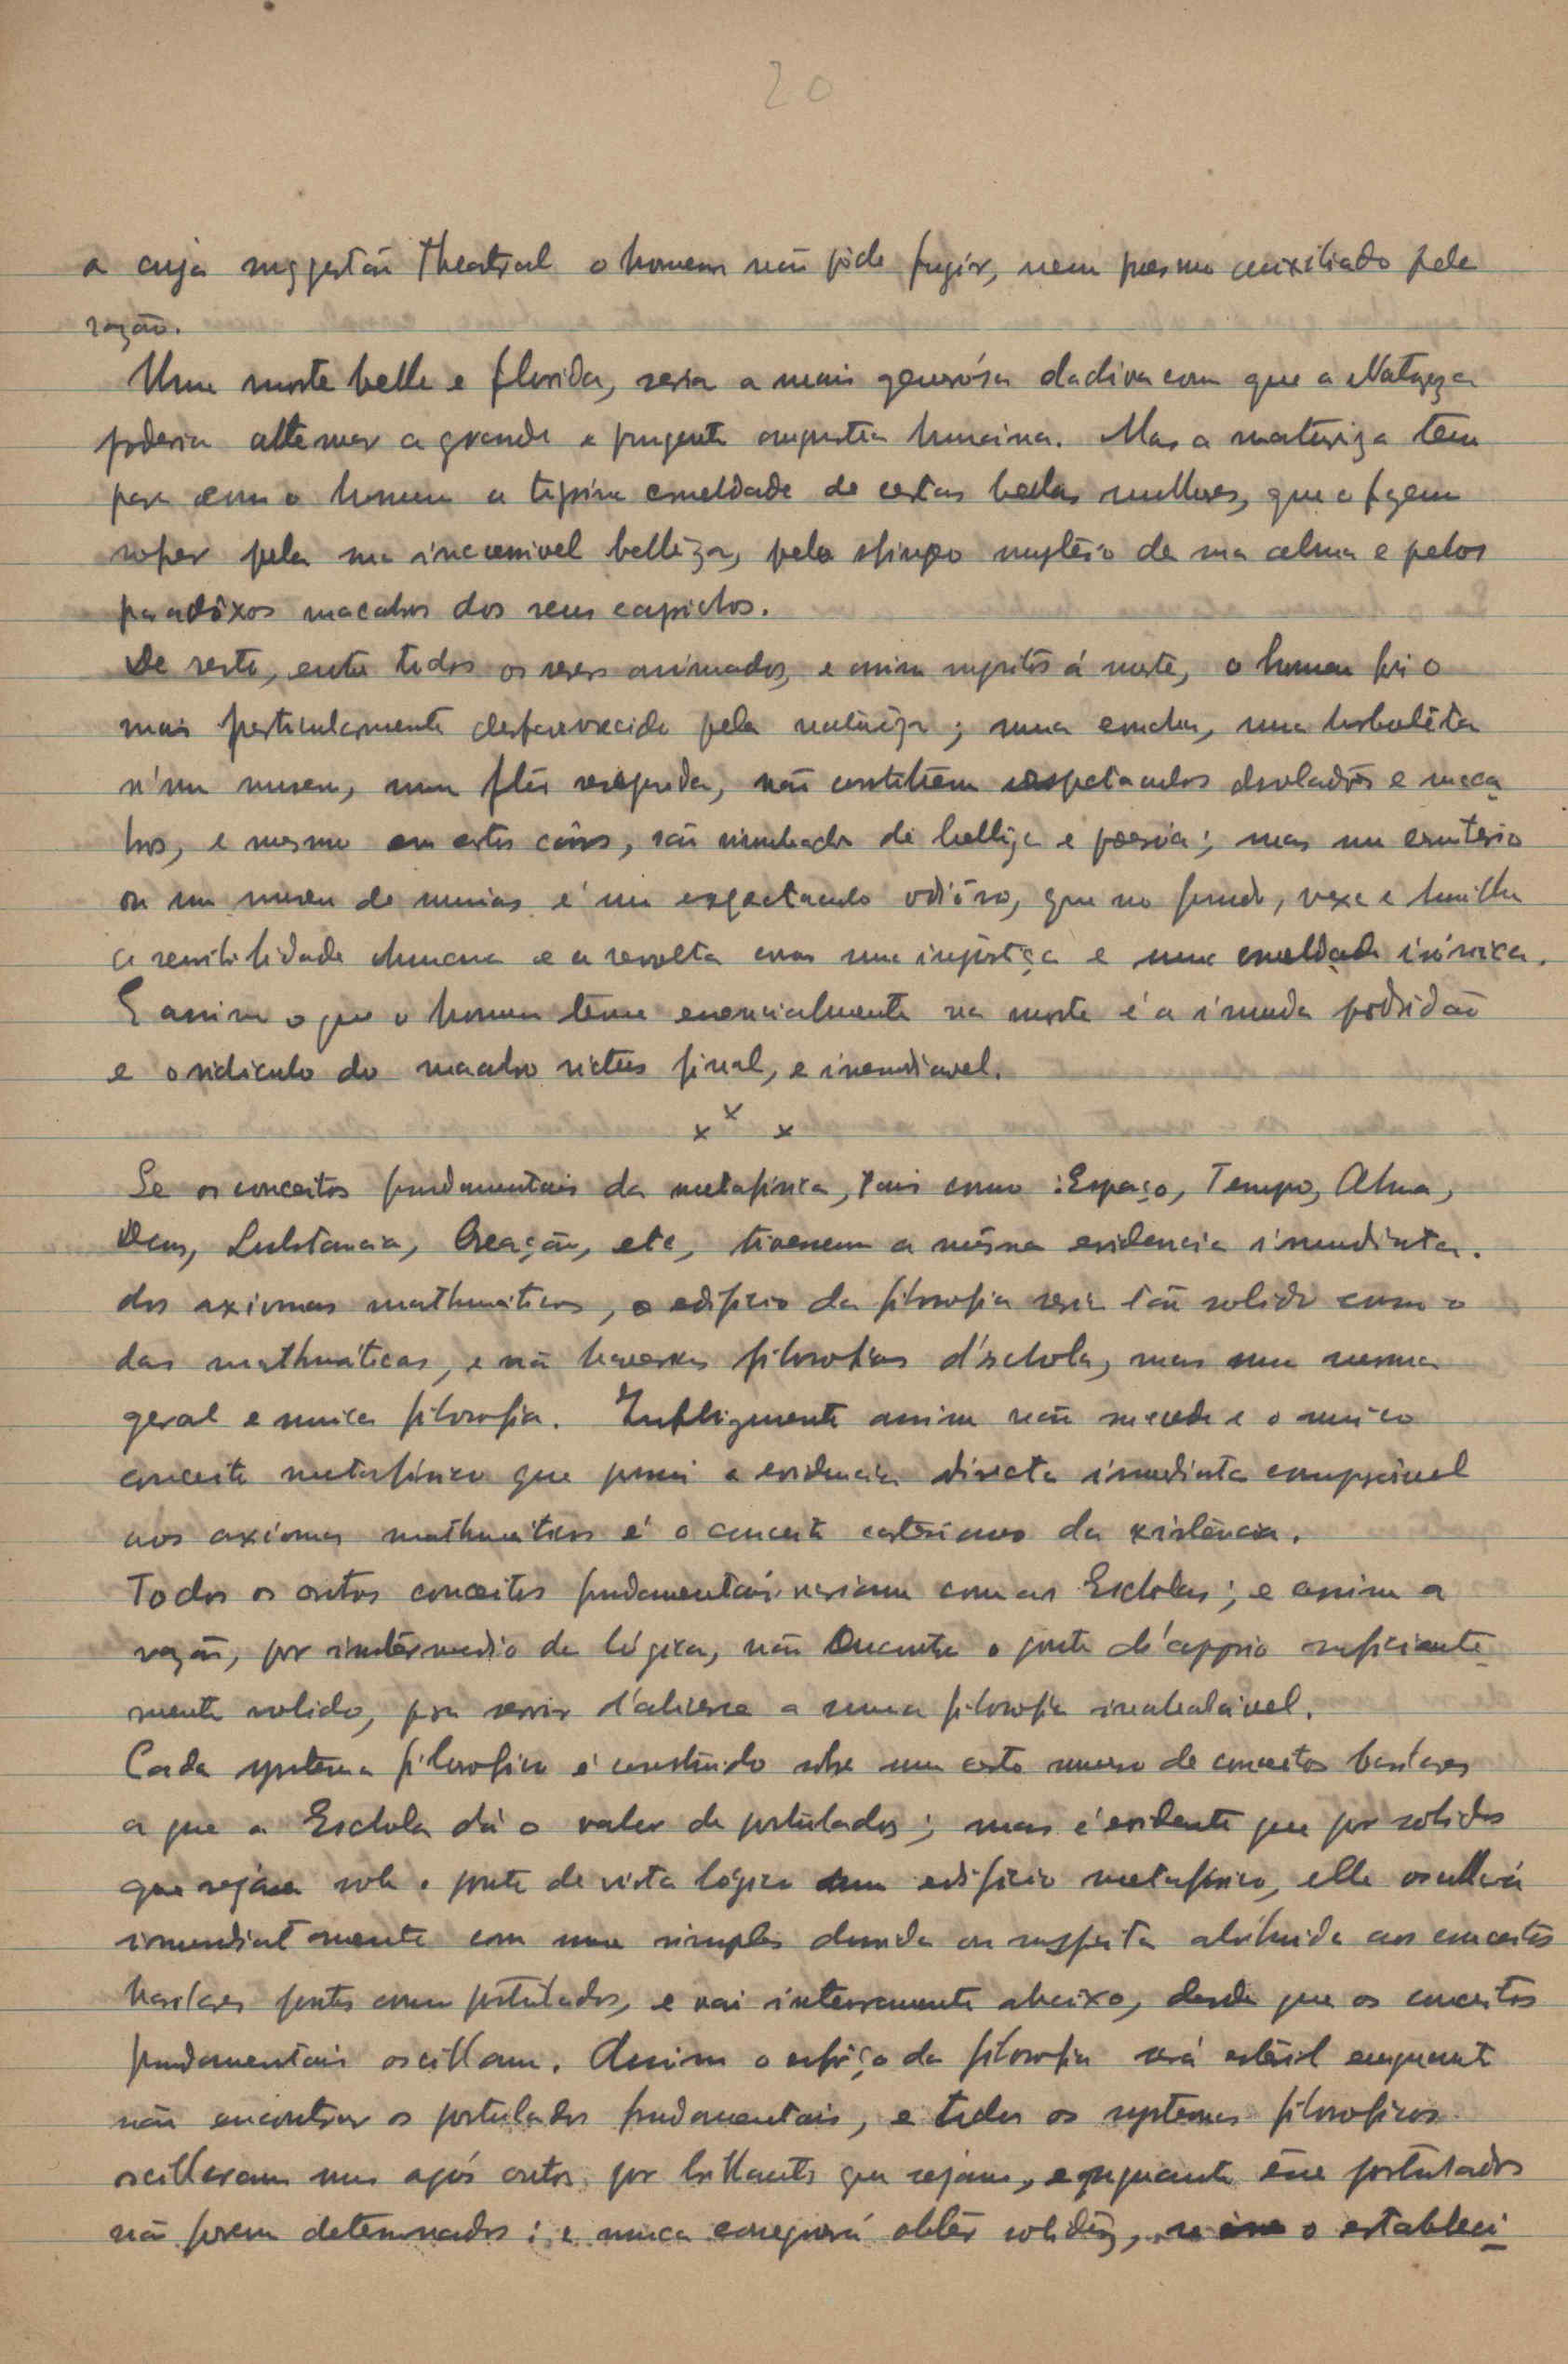 20
a cuja suggestão theatral o homem não póde fugir, nem mesmo auxiliado pela
razão.
Uma morte bella e florida, seria a mais generósa dadiva com que a Natureza
poderia attenuar a grande e pungente angustia humana. Mas a natureza tem
para com o homem a crueldade de certas bellas mulheres, que o fazem
sofrer pela sua inaccessivel belleza, pelo mysterio da sua alma e pelos
paradôxos macabros dos seus caprichos.
De resto, entre todos os seres animados, e assim sujeitos á morte, o homem foi o
mais particularmente desfavorecido pela natureza; uma concha, uma borbolêta
n'um museu, uma flôr resequida, não constituem espectaculos desoladôres e maca
bros, e mesmo em certos cásos, são nimbados de belleza e poesia; mas um cemiterio
ou um museu de mumias é um espectaculo odióso, que no fundo, vexa e humilha
a sensibilidade humana e a revolta como uma injustiça e uma crueldade irónica.
E assim o que o homem teme essencialmente na morte é a imunda podridão
e o ridiculo do macabro rictus final, e irremediavel.
x x x
Se os conceitos fundamentais da metafisica, tais como : Espaço, Tempo, Alma,
Deus, Substancia, Creação, etc, tivessem a mésma evidencia immediata
dos axiomas mathematicos, o edificio da filosofia seria tão solido como o
das mathemáticas, e não haveria filosofias d'eschola, mas uma mesma
geral e unica filosofia. Infelizmente assim não succede e o unico
conceito metafisico que possui a evidencia directa immediata comparavel
aos axiomas mathematicos é o conceito cartesiano da existência.
Todos os outros conceitos fundamentais variam com as Escholas; e assim a
razão, por intérmedio da lógica, não encontra o ponto d'appoio suficiente
mente solido, para servir d'alicerce a uma filosofia inabalável.
Cada systema filosofico é construido sobre um certo numero de conceitos basilares
a que a Eschola dá o valor de postulados; mas é evidente que por solidos
que sejam sob o ponto de vista lógico um edificio metafisico, elle oscillará
immediatamente com uma simples duvida ou suspeita atribuida aos conceitos
basilares postos como postulados, e vai inteiramente abaixo, desde que os conceitos
fundamentais oscillam. Assim o esfôrço da filosofia será estéril emquanto
não encontrar os postulados fundamentais, e todos os systemas filosoficos
oscillaram uns após outros por brilhantes que sejam, emquanto êsses postulados
não forem determinados: e nunca conseguirá obtêr solidêz, o estableci